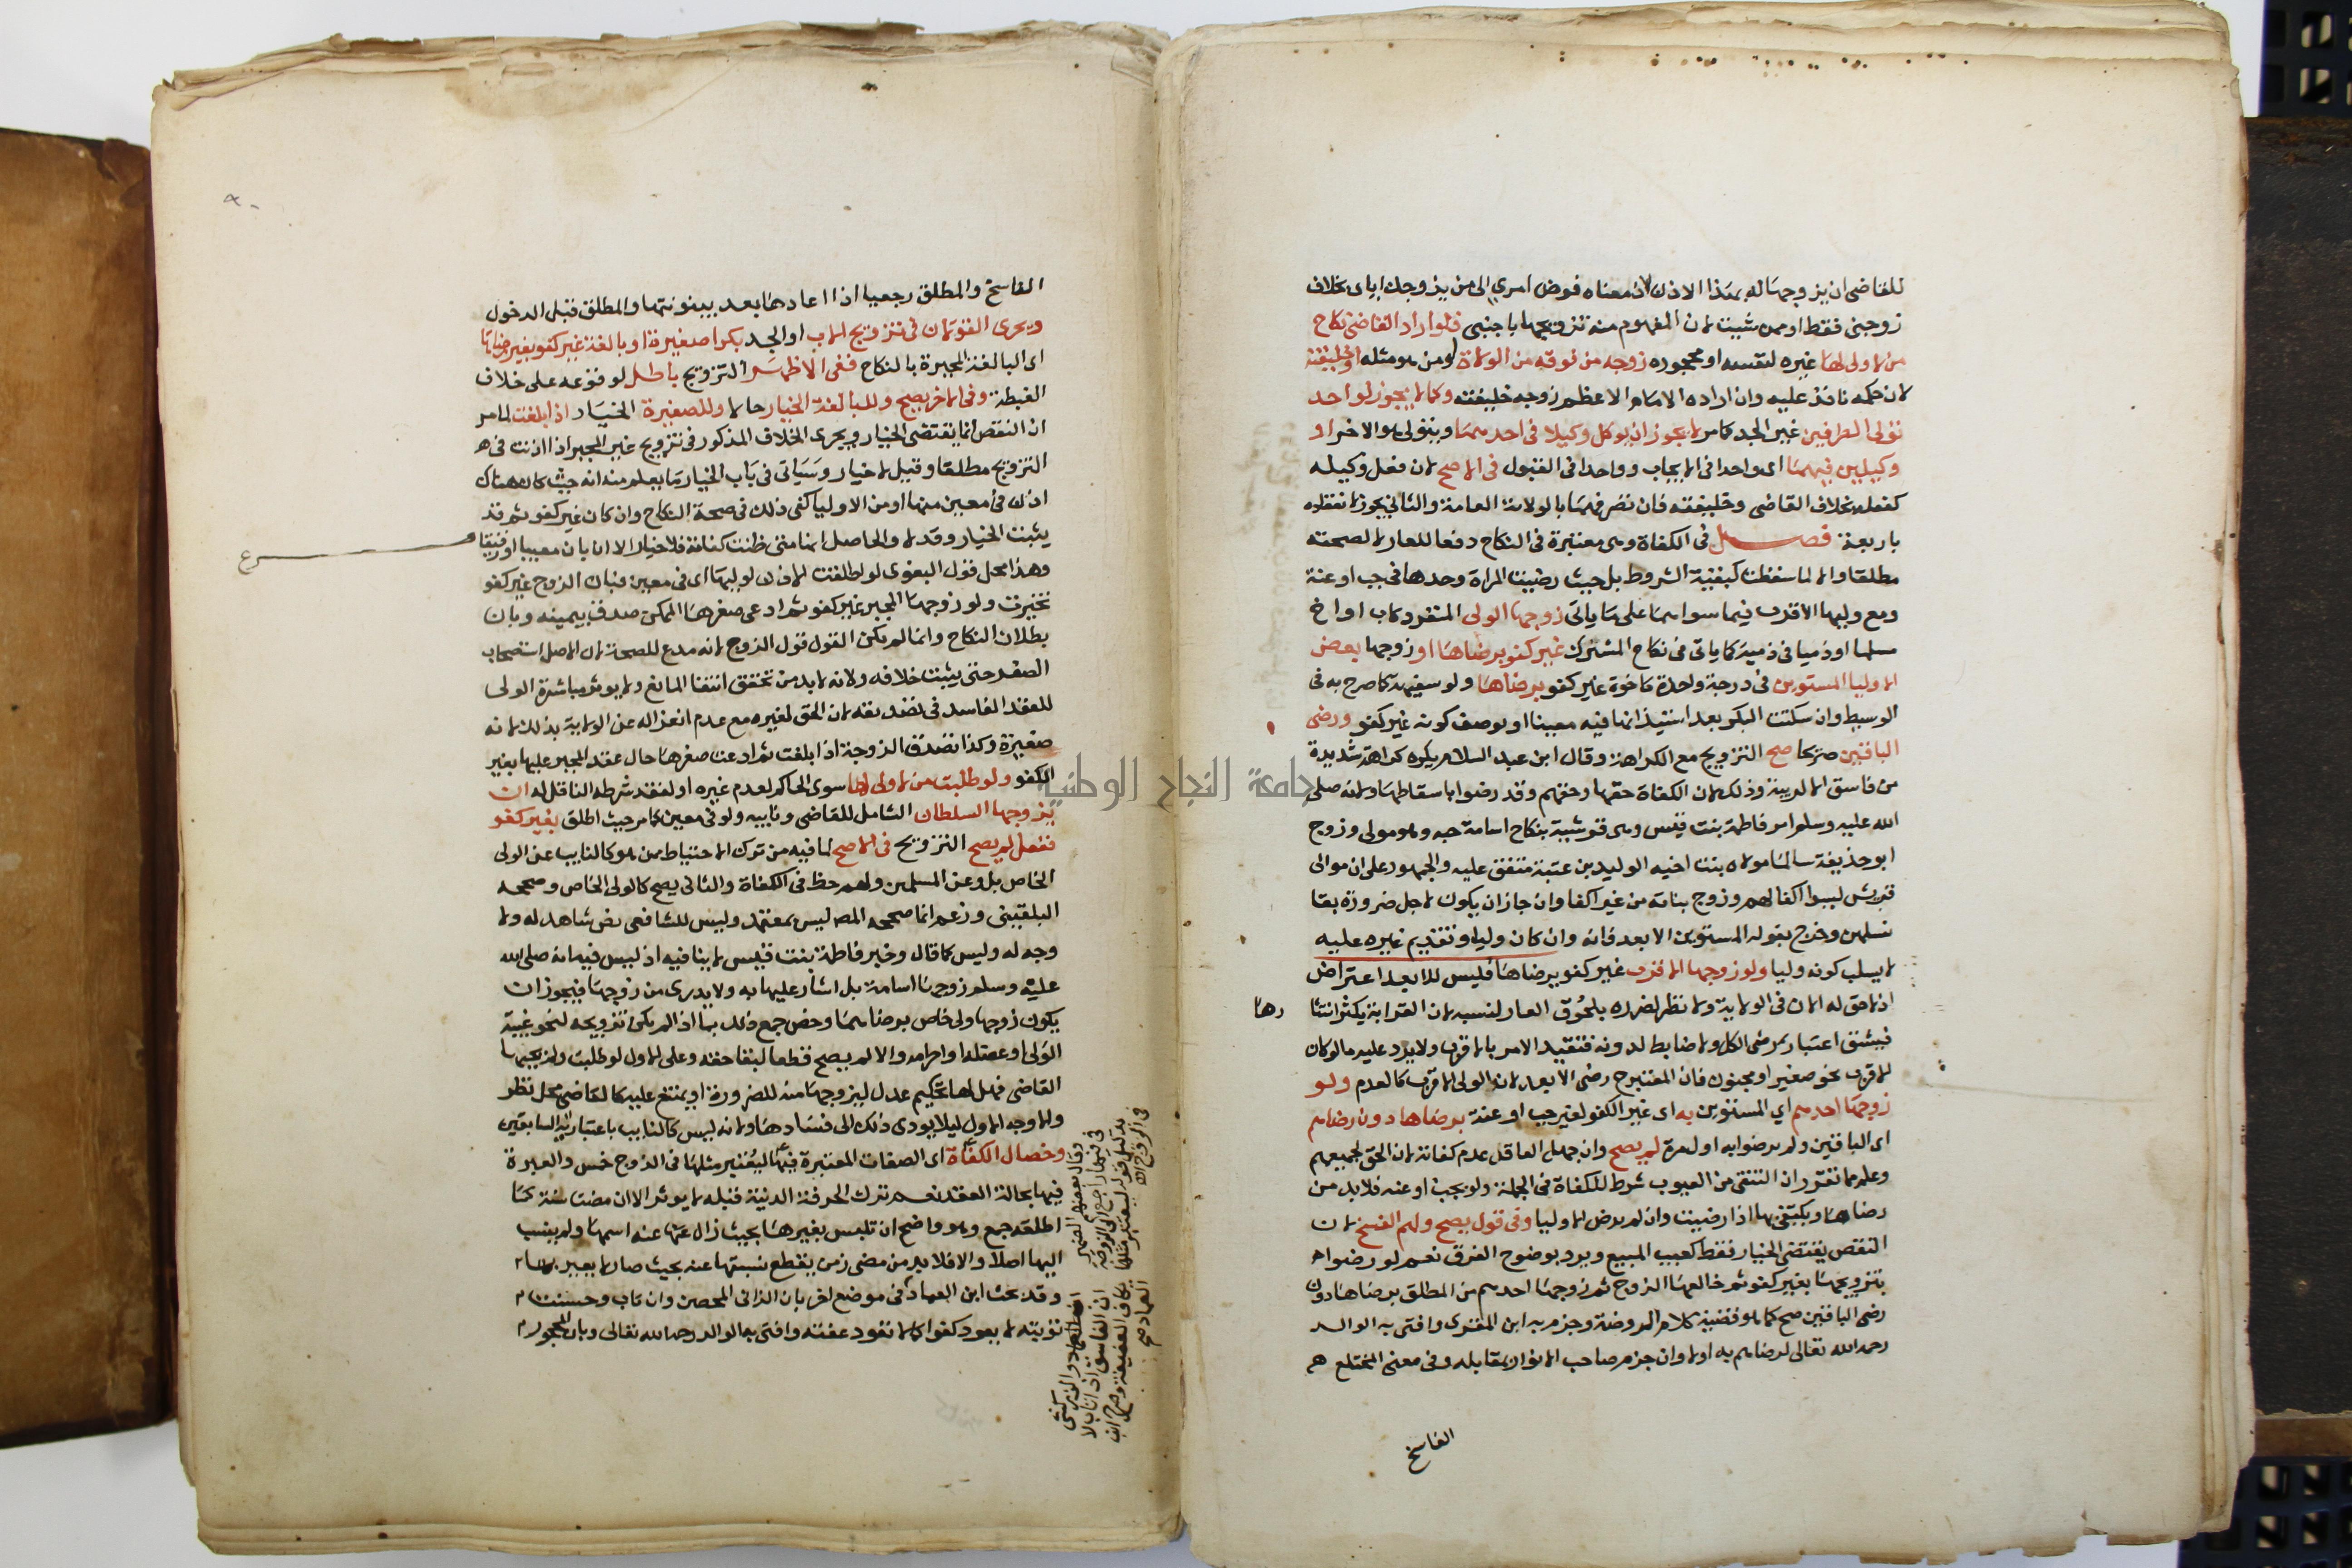 للقاضى ان يزوجها له بهذا الاذن لان معناه فوض امري الى من يزوجك اياى بخلاف
زوجنى فقط او ممن شيت لان المفهوم منه تزويجها باجنبى فلو اراد القاضى نكاح
من لا ولى لها غيره لنفسه او محجوره زوجه من فوقه من الولاة او من هو مثله او خليفته
لان حكمه نافذ عليه وان اراده الامام الاعظم زوجه خليفته وكما لا يجوز لواحد
تولى الطرفين غير الجد كما مر لا يجوز ان يوكل وكيلا فى احدهما ويتولى هو الاخر او
وكيلين فيهما اى واحدا فى الايجاب وواحدا فى القبول فى الاصح لان فعل وكيله
كفعله بخلاف القاضى وخليفته فان تصرفهما بالولاية العامة والثانى يجوز لانعقاده
باربعة فصل فى الكفاة وهى معتبرة فى النكاح دفعا للعار لا لصحته
مطلقا والا لما سقطت كبقية الشروط بل حيث رضيت المراة وحدها فى جب او عنة
ومع وليها الاقرب فيما سواهما على ما ياتى زوجها الولى المنفرد كاب او اخ
مسلما او ذميا فى ذمية كما ياتى فى نكاح المشرك غير كفو برضاها او زوجها بعض
الاوليا المستوين فى درجة واحدة كاخوة غير كفو برضاها ولو سفيهة كما صرح به فى
الوسيط وان سكتت البكر بعد استيذانها فيه معينا او بوصف كونه غير كفو ورضى
الباقين صريحا صح التزويج مع الكراهة وقال ابن عبد السلام يكره كراهة شديدة
من فاسق الا لريبة وذلك لان الكفاة حقها وحقهم وقد رضوا باسقاطها ولانه صلى
الله عليه وسلم امر فاطمة بنت قيس وهى قرشية بنكاح اسامة حبه وهو مولى وزوج
ابو حذيفة سالما مولاه بنت اخيه الوليد بن عتبة متفق عليه والجمهور على ان موالى
قريش ليسوا اكفا لهم وزوج بناته من غير اكفا وان جاز ان يكون لاجل ضرورة بقا
نسلهن وخرج بقوله المستوين الابعد فانه وان كان وليا وتقديم غيره عليه
لا يسلب كونه وليا ولو زوجها الاقرب غير كفو برضاها فليس للابعد اعتراض
اذ لا حق له الان فى الولاية ولا نظر لضرره بلحوق العار لنسبه لان القرابة يكثر انتشا
رها
فيشق اعتبار رضى الكل ولا ضابط لدونه فتقيد الامر بالاقرب ولا يرد عليه ما لو كان
الاقرب نحو صغير او مجنون فان المعتبر ح رضى الابعد لان الولى الاقرب كالعدم ولو
زوجها احدهم اي المستوين به اى غير الكفو لغير جب او عنة برضاها دون رضاهم
اى الباقين ولم يرضوا به اول مرة لم يصح وان جهل العاقد عدم كفاته لان الحق لجميعهم
وعلم مما تقرر ان التنقى من العيوب شرط للكفاة فى الجملة ولو بجب او عنه فلا بد من
رضاها ويكتفى بها اذا رضيت وان لم يرض الاوليا وفى قول يصح ولهم الفسخ لان
النقص يقتضى الخيار فقط كعيب المبيع ويرد بوضوح الفرق نعم لو رضوا
بتزويجها بغير كفو ثم خالعها الزوج ثم زوجها احدهم من المطلق برضاها دون
رضى الباقين صح كما هو قضية كلام الروضة وجزم به ابن المقرى وافتى به الوالد
رحمه الله تعالى لرضاهم به اولا وان جزم صاحب الانوار بمقابله وفى معنى المختلع
الفاسخ
الفاسخ والمطلق رجعيا اذا اعادها بعد بينونتها والمطلق قبل الدخول
ويجرى القولان فى تزويج الاب او الجد بكرا صغيرة او بالغة غير كفو بغير رضاها
اى البالغة المجبرة بالنكاح ففى الاظهر التزويج باطل لوقوعه على خلاف
الغبطة وفى الاخر يصح وللبالغة الخيار حالا وللصغيرة الخيار اذا بلغت لما مر
ان النقص انما يقتضى الخيار ويجرى الخلاف المذكور فى تزويج غير المجبر اذا اذنت فى
التزويج مطلقا وقيل لا خيار وسياتى فى باب الخيار ما يعلم منه انه حيث كان هناك
اذن فى معين منها او من الاوليا كفى ذلك فى صحة النكاح وان كان غير كفو ثم قد
يثبت الخيار وقد لا والحاصل انها متى ظنت كفاته فلا خيار الا ان بان معيبا او رقيقا
وهذا محل قول البغوى لو اطلقت الاذن لوليها اى فى معين فبان الزوج غير كفو
تخيرت ولو زوجها المجبر بغير كفو ثم ادعى صغرها الممكن صدق بيمينه وبان
بطلان النكاح وانما لم يكن القول قول الزوج لانه مدع للصحة لان الاصل استصحاب
الصغر حتى يثبت خلافه ولانه لا بد من تحقق انتفا المانع ولا يوثر مباشرة الولى
للعقد الفاسد فى تصديقه لان الحق لغيره مع عدم انعزاله عن الولاية بذلك لانه
صغيرة وكذا تصدق الزوجة اذا بلغت ثم ادعت صغرها حال عقد المجبر عليها بغير
الكفو ولو طلبت من لا ولى لها سوى الحاكم لعدم غيره او لفقد شرطه الناقل له ان
يزوجها السلطان الشامل للقاضى ونايبه ولو فى معين كما مر حيث اطلق بغير كفو
ففعل لم يصح التزويج فى الاصح لما فيه من ترك الاحتياط ممن هو كالنايب عن الولى
الخاص بل وعن المسلمين ولهم حظ فى الكفاة والثانى يصح كالولى الخاص وصححه
البلقينى وزعم انما صححه المص ليس بمعتمد وليس للشافعى نص شاهد له ولا
وجه له وليس كما قال وخبر فاطمة بنت قيس لا ينافيه اذ ليس فيه انه صلى الله
عليه وسلم زوجها اسامة بل اشار عليها به ولا يدرى من زوجها فيجوز ان
يكون زوجها ولى خاص برضاهما وخص جمع ذلك بما اذا لم يكن تزويجه لنحو غيبة
الولى او عضله او احرامه والا لم يصح قطعا لبقا حقه وعلى الاول لو طلبت ولم يجبها
القاضى فهل لها تحكيم عدل ليزوجها منه للضرورة او يمتنع عليه كالقاضى محل نظر
والاوجه الاول ليلا يودى ذلك الى فسادها ولانه ليس كالنايب باعتباريه السابقين
وخصال الكفاة اى الصفات المعتبرة فيها ليعتبر مثلها فى الزوج خمس والعبرة
فيها بحالة العقد نعم ترك الحرفة الدنية قبله لا يوثر الا ان مضت سنة كما
اطلقه جمع وهو واضح ان تلبس بغيرها بحيث زال عنها عنه اسمها ولم ينسب
اليها اصلا والا فلا بد من مضى زمن يقطع نسبتها عنه بحيث صار لا يعير بها
وقد بحث ابن العماد فى موضع اخر بان الزانى المحصن وان تاب وحسنت
توبته لا يعود كفوا كما لا تعود عفته وافتى به الوالد رحمه الله تعالى وبان المحجور
جامعة النجاح الوطنية